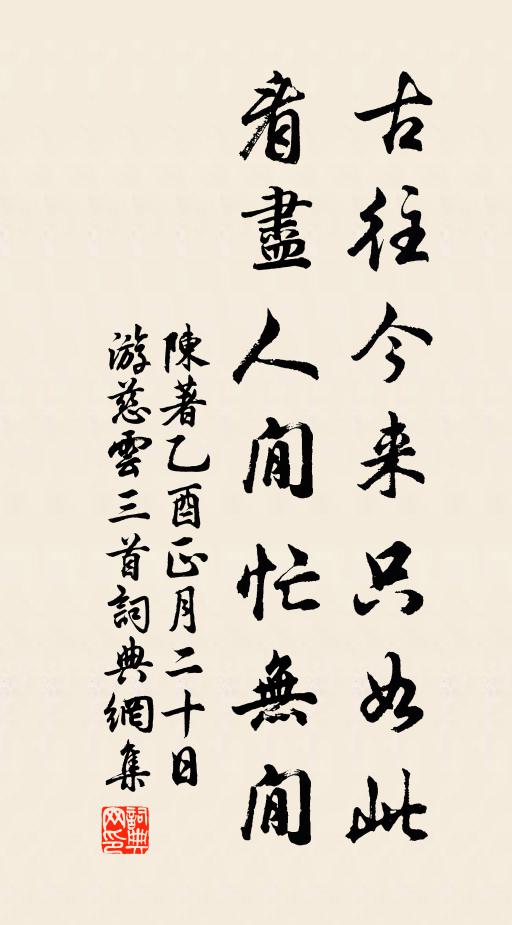 古往今来只如此
看盡人間忙無間
陳著乙酉正月二十日
游慈雲三首詞典網集
詞典网印